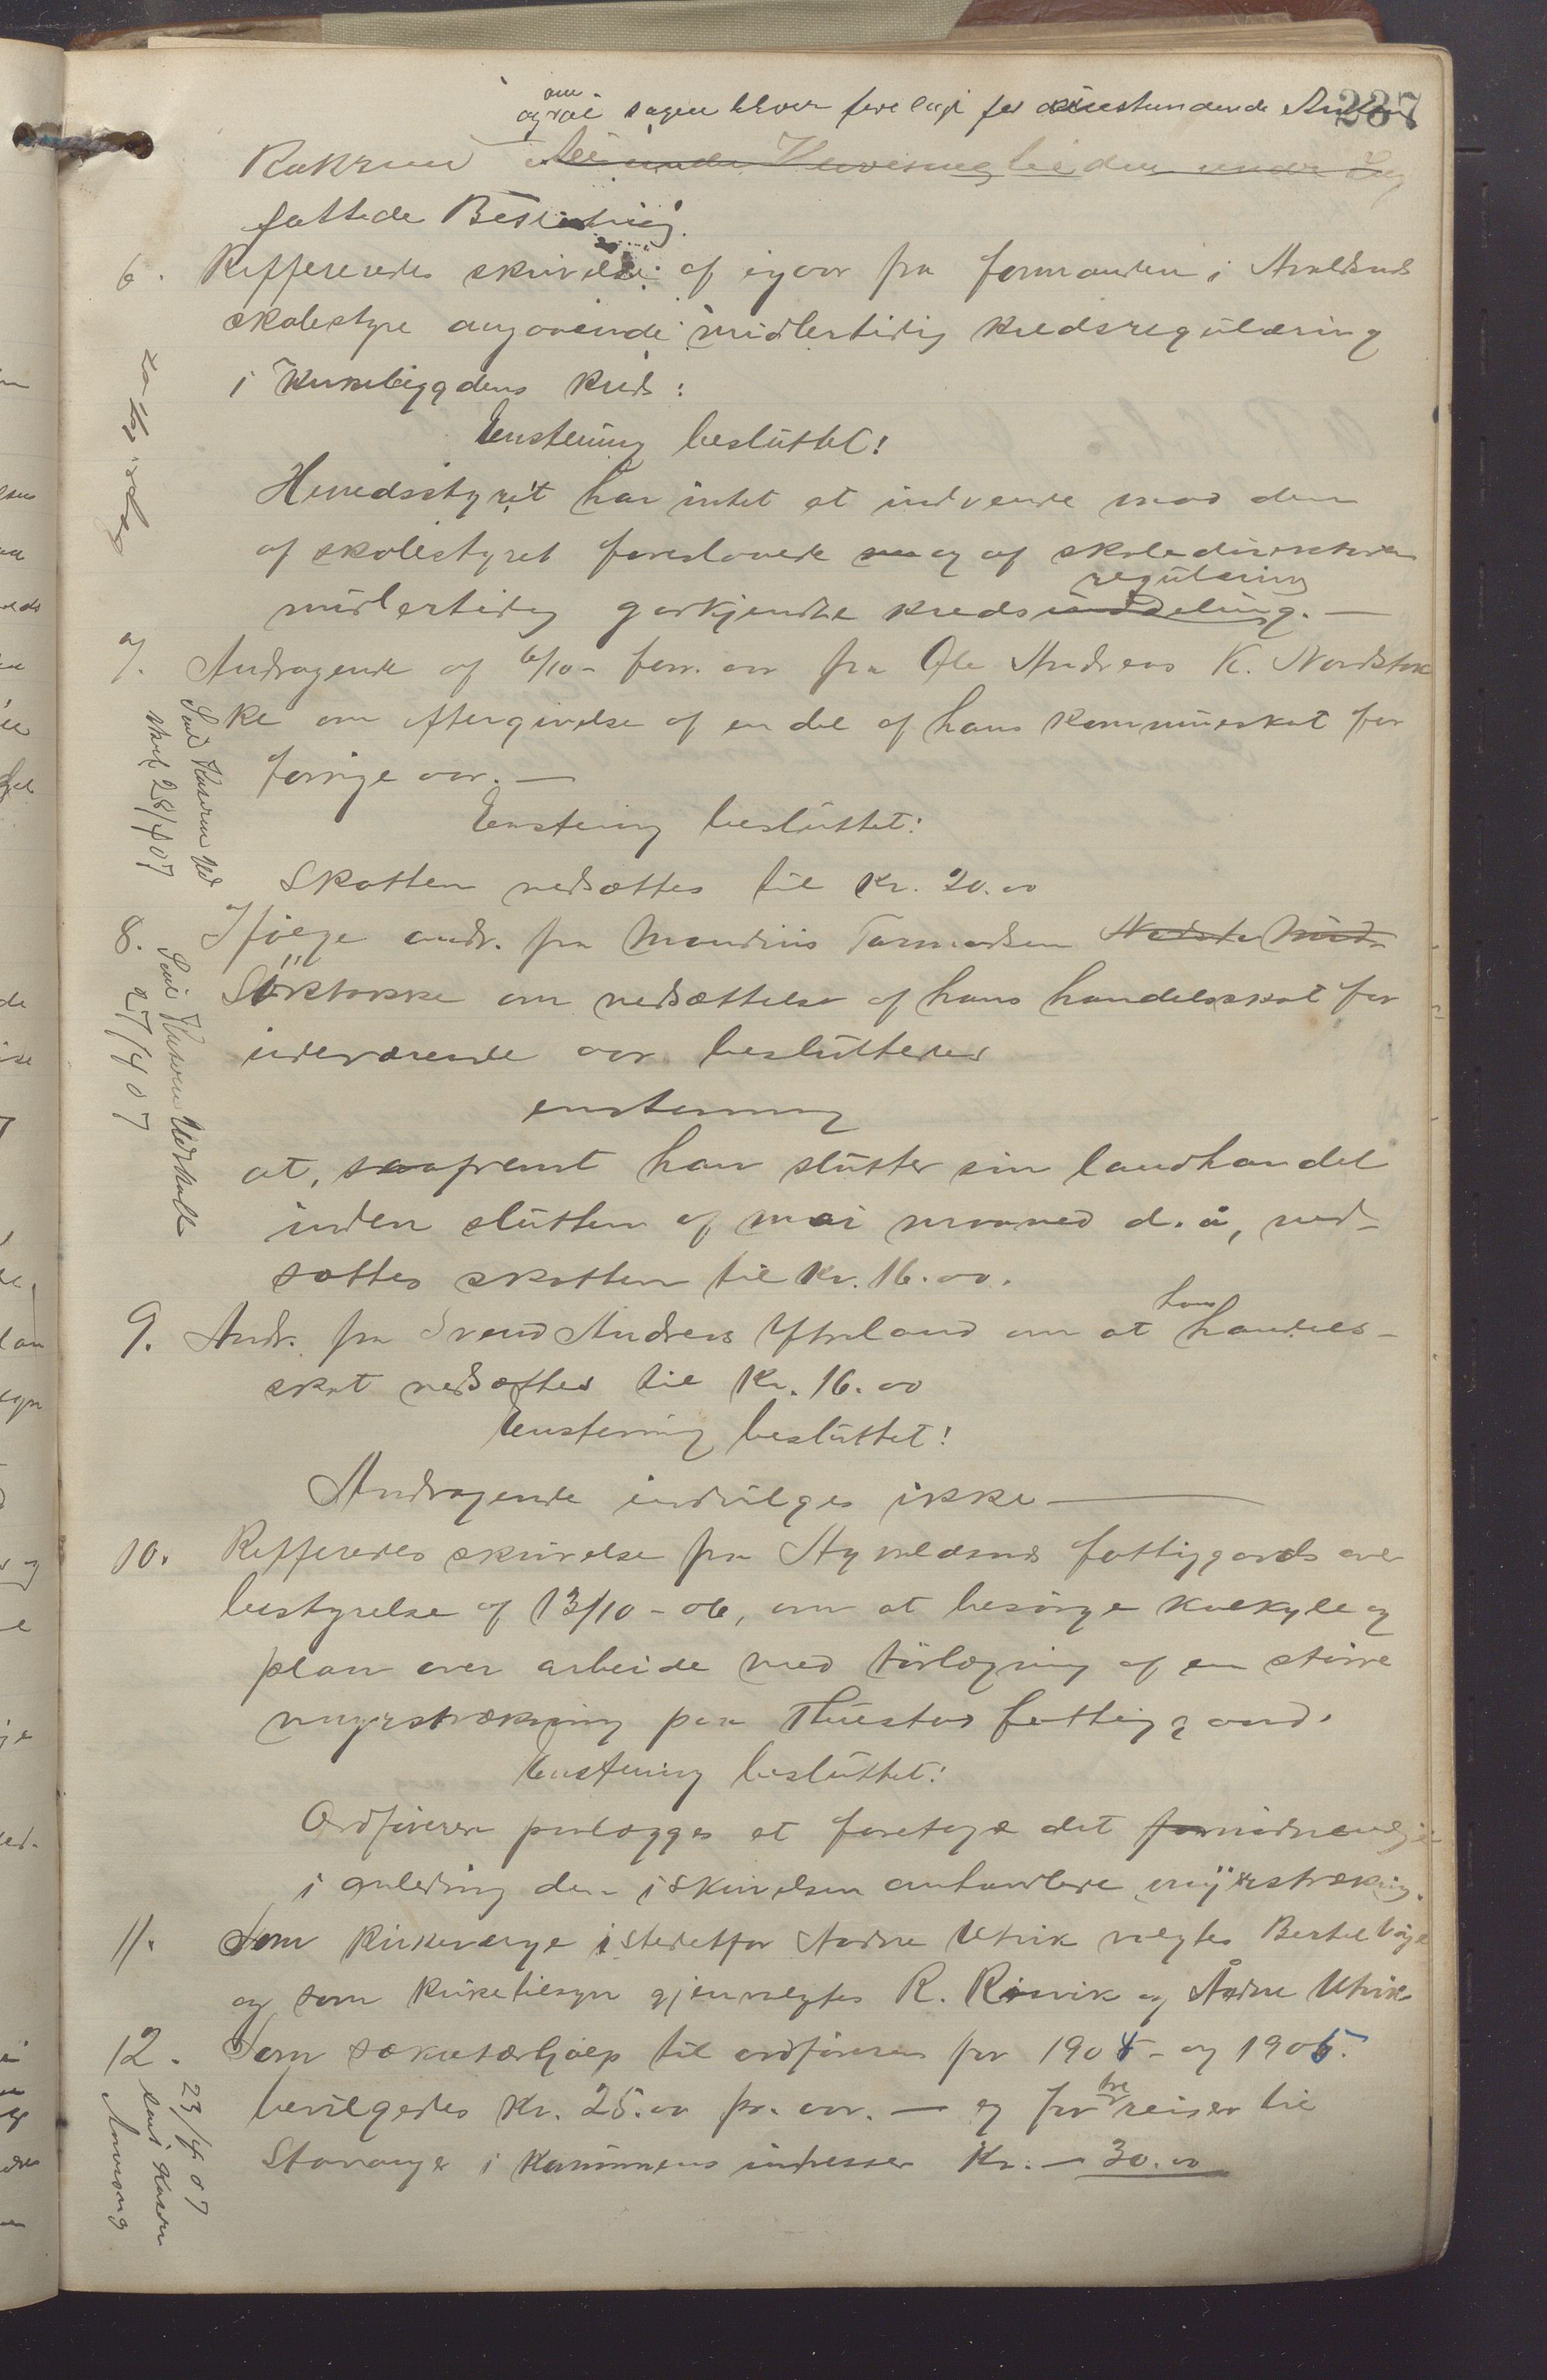 237
om
og naar sagen bliver forelagt for
fattede Beslutning.
6. Reffereredes skrivelse af igaar fra formanden i Avaldsnes
skolestyre angaaende midlertidig kredsregulæring
i kreds:
Enstemig besluttet!
Herredsstyret har intet at indvende mod den
af skolestyret foreslaaede og af skoledirektøren
regulæring
midlertidig godkjendte kredsinddeling. —
7. Andragende af 6/10 - forr. aar fra Ole Andreas K. Nordstok
ke om eftergivelse af en del af hans kommuneskat for
forrige aar. —
Send Kaserer Ud
skrif 28/4 07
Enstemig besluttet:
Skatten nedsættes til kr. 20.00
8. Ifølge andr. fra Mandrius Tormodsen
Sørstokke om nedsættelse af hans handelsskat for
indeværende aar besluttedes
enstemmig
Send Kaserer Udskrift
27/4 07
at, saafremt han slutter sin landhandel
inden slutten af mai maaned d. å, ned-
sættes skatten til kr. 16.00.
hans
9. Andr. fra Svend Andreas Ytreland om at handels-
skat nedsættes til kr. 16.00
Enstemig besluttet!
Andragende indvilges ikke —
10. Reffereredes skrivelse fra fattiggaards over
bestyrelse af 13/10 - 06, om at besørge kalkyle og
plan over arbeide med tørlægning af en større
myrstrækning paa fattiggaard.
Enstemig besluttet:
Ordføreren paalægges at foretage det fornødne
i anledning den i skrivelsen omhandlede myrstrækning.
11. Som kirkeverge istedetfor Aadne Utvik valgtes Bertel Våge
og som kirketilsyn gjenvalgtes R. Risvik og Ådne Utvik
12. Som sekretærhjælp til ordføreren for 1904 - og 1905.
tre
bevilgedes kr. 25.00 pr. aar. — og for reiser til
Stavanger i kommunens intresser kr. — 30.00
23/4 07
sendt Kaserer
Anvisning